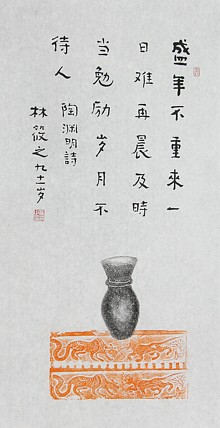 盛年不重來一
日难再晨及時
当勉励岁月不
待人 陶渊明詩
林筱之九十一岁